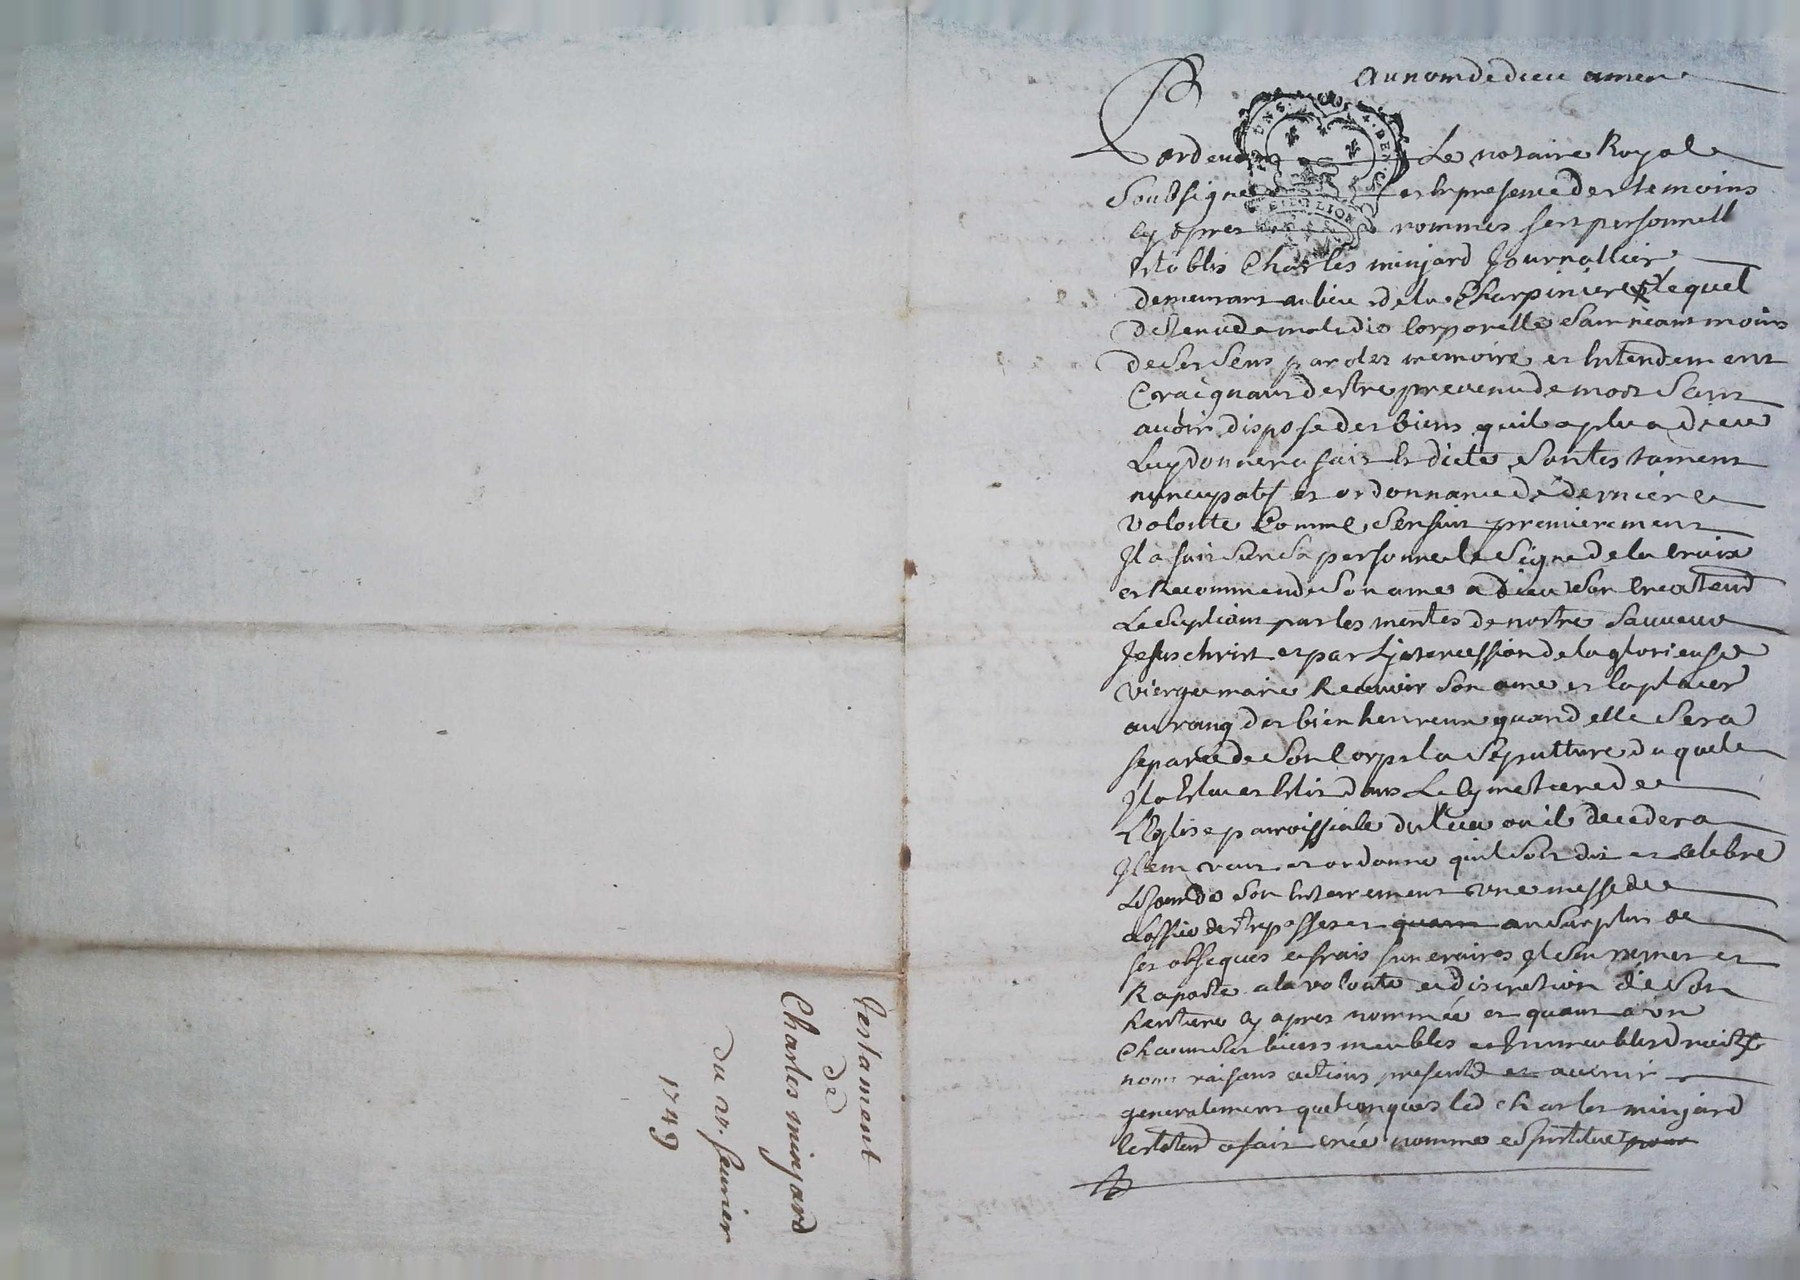 Testament
de
Charles minjard
du 20. feurier
1749
Au nom de dieu amen
Pardeuant Le notaire Royal
Soubsigné et en presence des temoins
cy apres nommes fut personnell
Establis Charles minjard Journallier
demeurant au lieu de la Charpiniere lequel
detenu de maladie Corporelle Sain neantmoins
de Ses Sens paroles memoire et Entendement
Craignant destre preuenu de mort Sans
auoir dispose des biens quil a plu a dieu
Luy donner a fait et dicte Son testament
nuncupatif et ordonnance de derniere
volonte Comme Sensuit premierement
Il a fait Sur Sa personne le Signe de la croix
et Recommende Son ame a dieu Son Createur
Le Supliant par les merites de nostre Sauueur
Jesus christ et par Lintercession de la glorieuse
vierge marie Receuoir Son ame et la placer
au rang des bien heureux quand elle Sera
separée de Son Corps la Sepulture duquel
Il a Elue et Elit dans Le Cymetiere de
L'Eglise parroissiale du lieu ou il decedera
Item veut et ordonne quil Soit dit et celebré
le jour de Son Enterrement une messe de
a loffice des trepasses et quant au Surplus de
ses obseques et frais funeraires Il Sen remet et
Raporte a la volonte et discretion de Son
heritiere cy apres nommée et quant a un
Chacun Ses biens meubles et Immeubles droits
noms raisons actions presents et auenir
generalement quelconques led Charles minjard
testateur a fait creé nommé et Institue pour